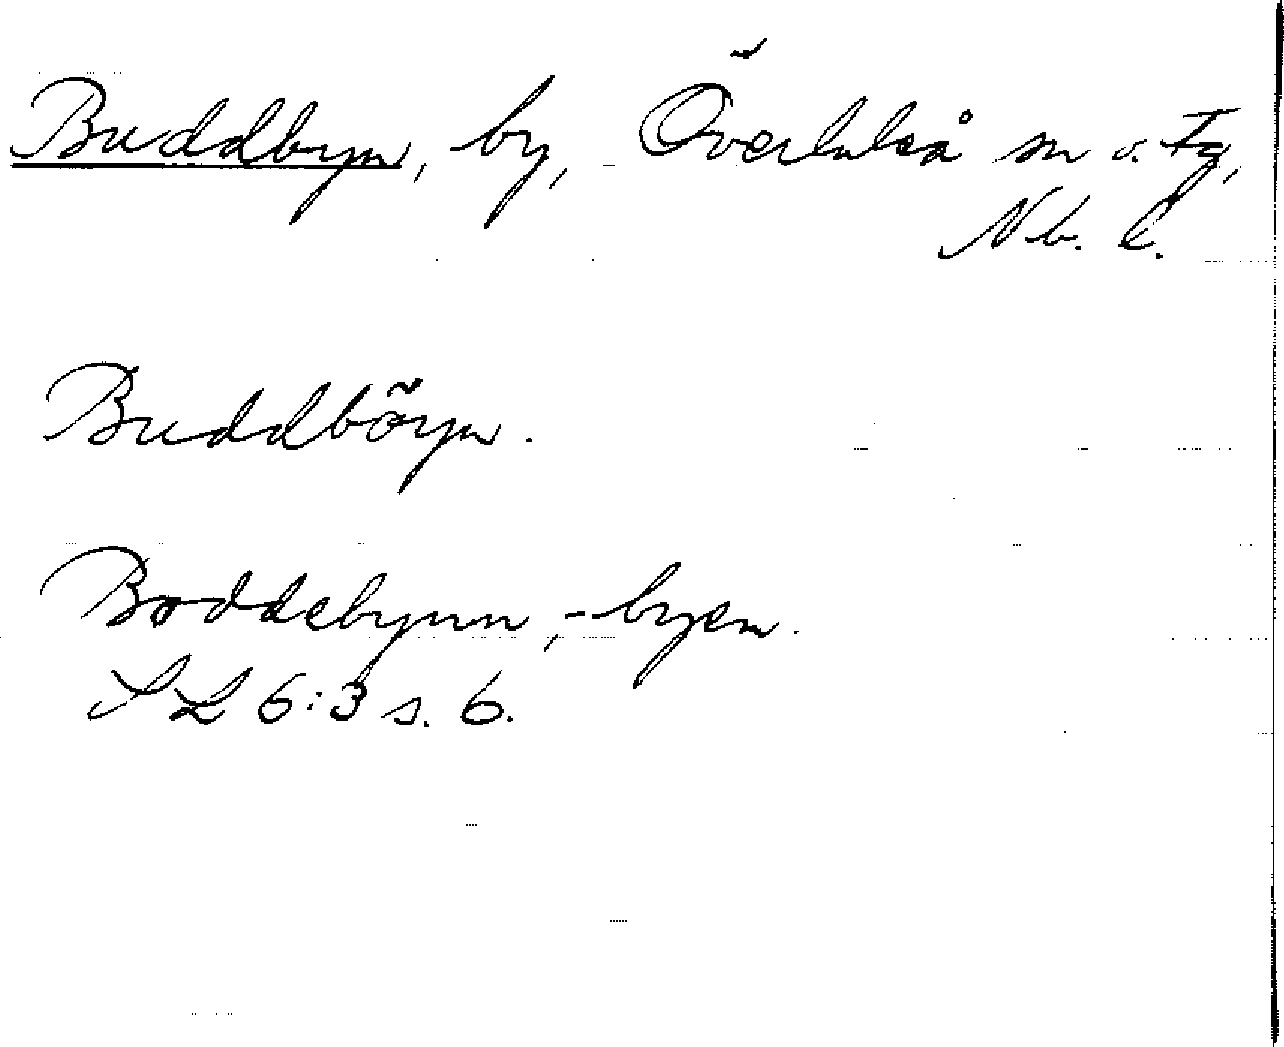 Buddbyn, by, Överluleå sn o. Tg,
Nb. l.
Buddböyn.
Boddebynn, -byen.
SL 6:3 s. 6.